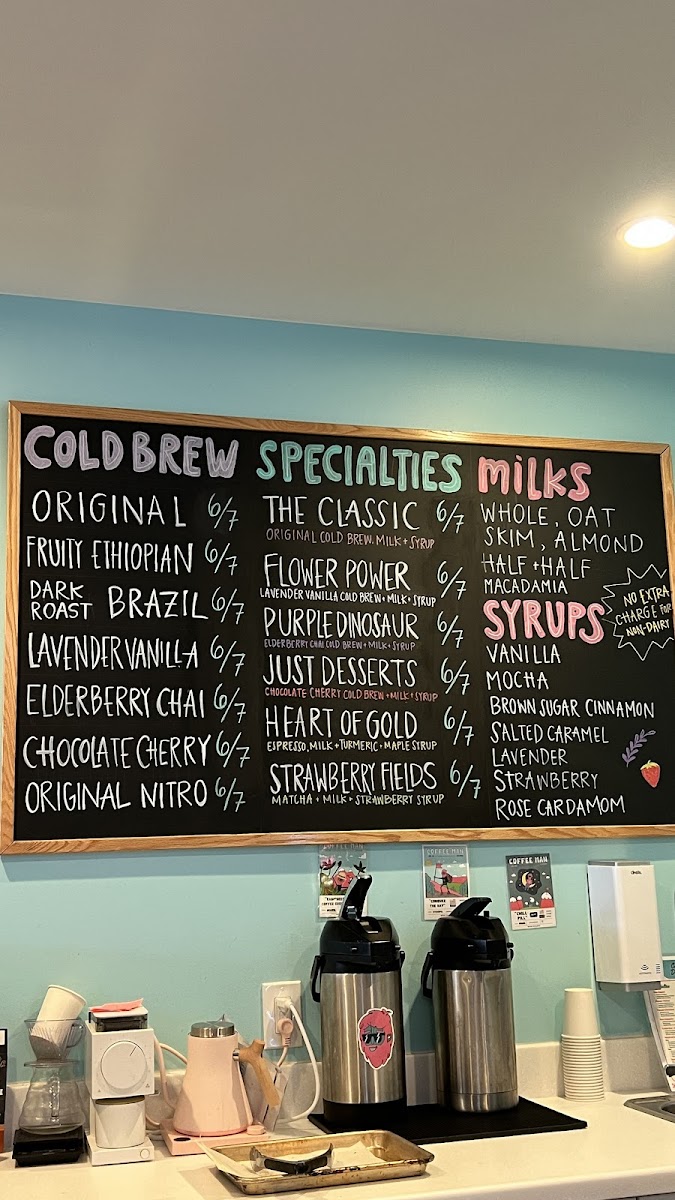 COLD BREW
ORIGINAL 6/7
FRUITY ETHIOPIAN 6/7
DARK ROAST BRAZIL 6/7
LAVENDER VANILLA 6/7
ELDERBERRY CHAI 6/7
CHOCOLATE CHERRY 6/7
ORIGINAL NITRO 6/7
SPECIALTIES
THE CLASSIC 6/7
ORIGINAL COLD BREW, MILK + SYRUP
FLOWER POWER 6/7
LAVENDER VANILLA COLD BREW + MILK + SYRUP
PURPLE DINOSAUR 6/7
ELDERBERRY CHAI COLD BREW + MILK + SYRUP
JUST DESSERTS 6/7
CHOCOLATE CHERRY COLD BREW + MILK + SYRUP
HEART OF GOLD 6/7
ESPRESSO, MILK + TURMERIC + MAPLE SYRUP
STRAWBERRY FIELDS 6/7
MATCHA + MILK + STRAWBERRY SYRUP
MILKS
WHOLE, OAT
SKIM, ALMOND
HALF + HALF
MACADAMIA
NO EXTRA
CHARGE FOR
NON-DAIRY
SYRUPS
VANILLA
MOCHA
BROWN SUGAR CINNAMON
SALTED CARAMEL
LAVENDER
STRAWBERRY
ROSE CARDAMOM
COFFEE MAN
COFFEE MAN
COFFEE MAN
"CHILL
PILL"